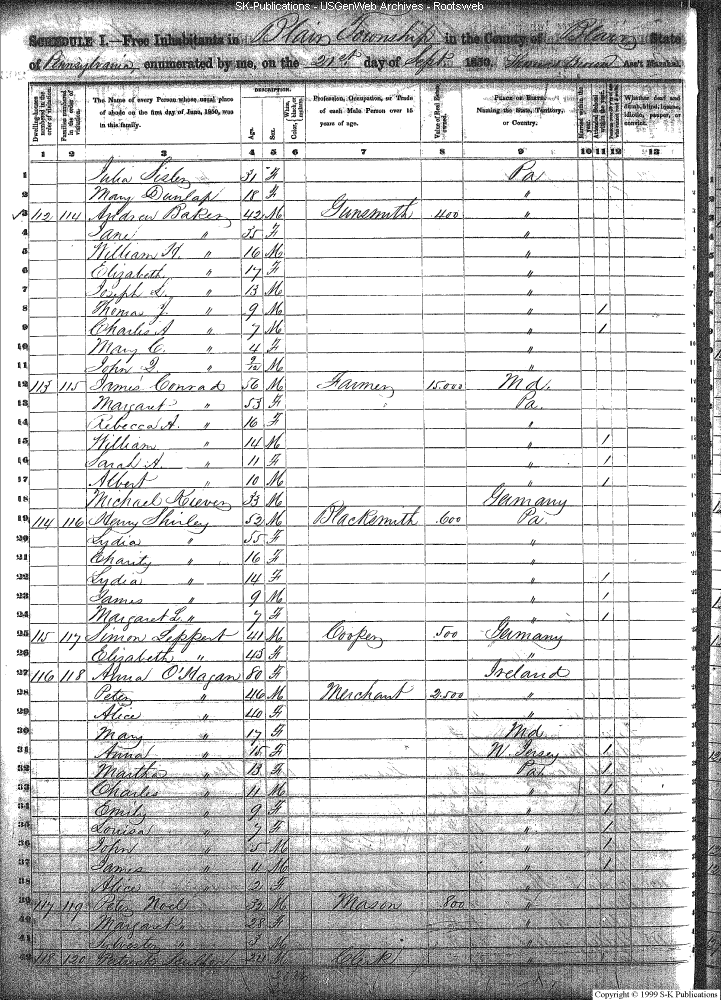 SK-Publications - USGenWeb Archives - Rootsweb
SCHEDULE I.—Free Inhabitants in Blair Township in the County of Blair State
of Pennsylvania, enumerated by me, on the 21st day of Sept 1850. Thomas Ass't Marshal.
Dwelling-houses numbered in the order of visitation.
Families numbered in the order of visitation.
The Name of every Person whose usual place of abode on the first day of June, 1850, was in this family.
DESCRIPTION.
Age.
Sex.
Profession, Occupation, or Trade of each Male Person over 15 years of age.
Value of Real Estate owned.
PLACE OF BIRTH. Naming the State, Territory, or Country.
Whether deaf and dumb, blind, insane, idiotic, pauper, or convict.
1 2 3 4 5 6 7 8 9 10 11 12 13
1 Julia 31 F Pa
2 Mary Dunlap 18 F "
3 112 114 Andrew Baker 42 M Gunsmith 400 "
4 Jane " 35 F "
5 William H. " 16 M "
6 Elizabeth " 17 F "
7 Joseph L. " 13 M "
8 Thomas J. " 9 M " 1
9 Charles A " 7 M " 1
10 Mary C. " 4 F "
11 John Q. " 9/12 M "
12 113 115 James Conrad 56 M Farmer 15.000 Md.
13 Margaret " 53 F Pa.
14 Rebecca A. " 16 F "
15 William " 14 M " 1
16 Sarah A. " 11 F " 1
17 Albert " 10 M " 1
18 Michael 33 M Germany
19 114 116 Henry Shirley 52 M Blacksmith 600 Pa
20 Lydia " 55 F "
21 Charity " 16 F "
22 Lydia " 14 F " 1
23 James " 9 M " 1
24 Margaret L. " 7 F " 1
25 115 117 Simon Leppert 41 M Cooper 500 Germany
26 Elizabeth " 43 F "
27 116 118 Anna O'Hagan 80 F Ireland
28 Peter " 46 M Merchant 2.500 "
29 Alice " 40 F "
30 Mary " 17 F Md
31 Anna " 15 F N. Jersey 1
32 Martha " 13 F Pa 1
33 Charles " 11 M " 1
34 Emily " 9 F " 1
35 Louisa " 7 F " 1
36 John " 5 M " 1
37 James " 4 M " 1
38 Alice " 2 F "
39 117 119 Peter Noel 32 M Mason 800 "
40 Margaret " 28 F "
41 Sylvester " 3 M "
42 118 120 24 M Clerk "
Copyright © 1999 S-K Publications